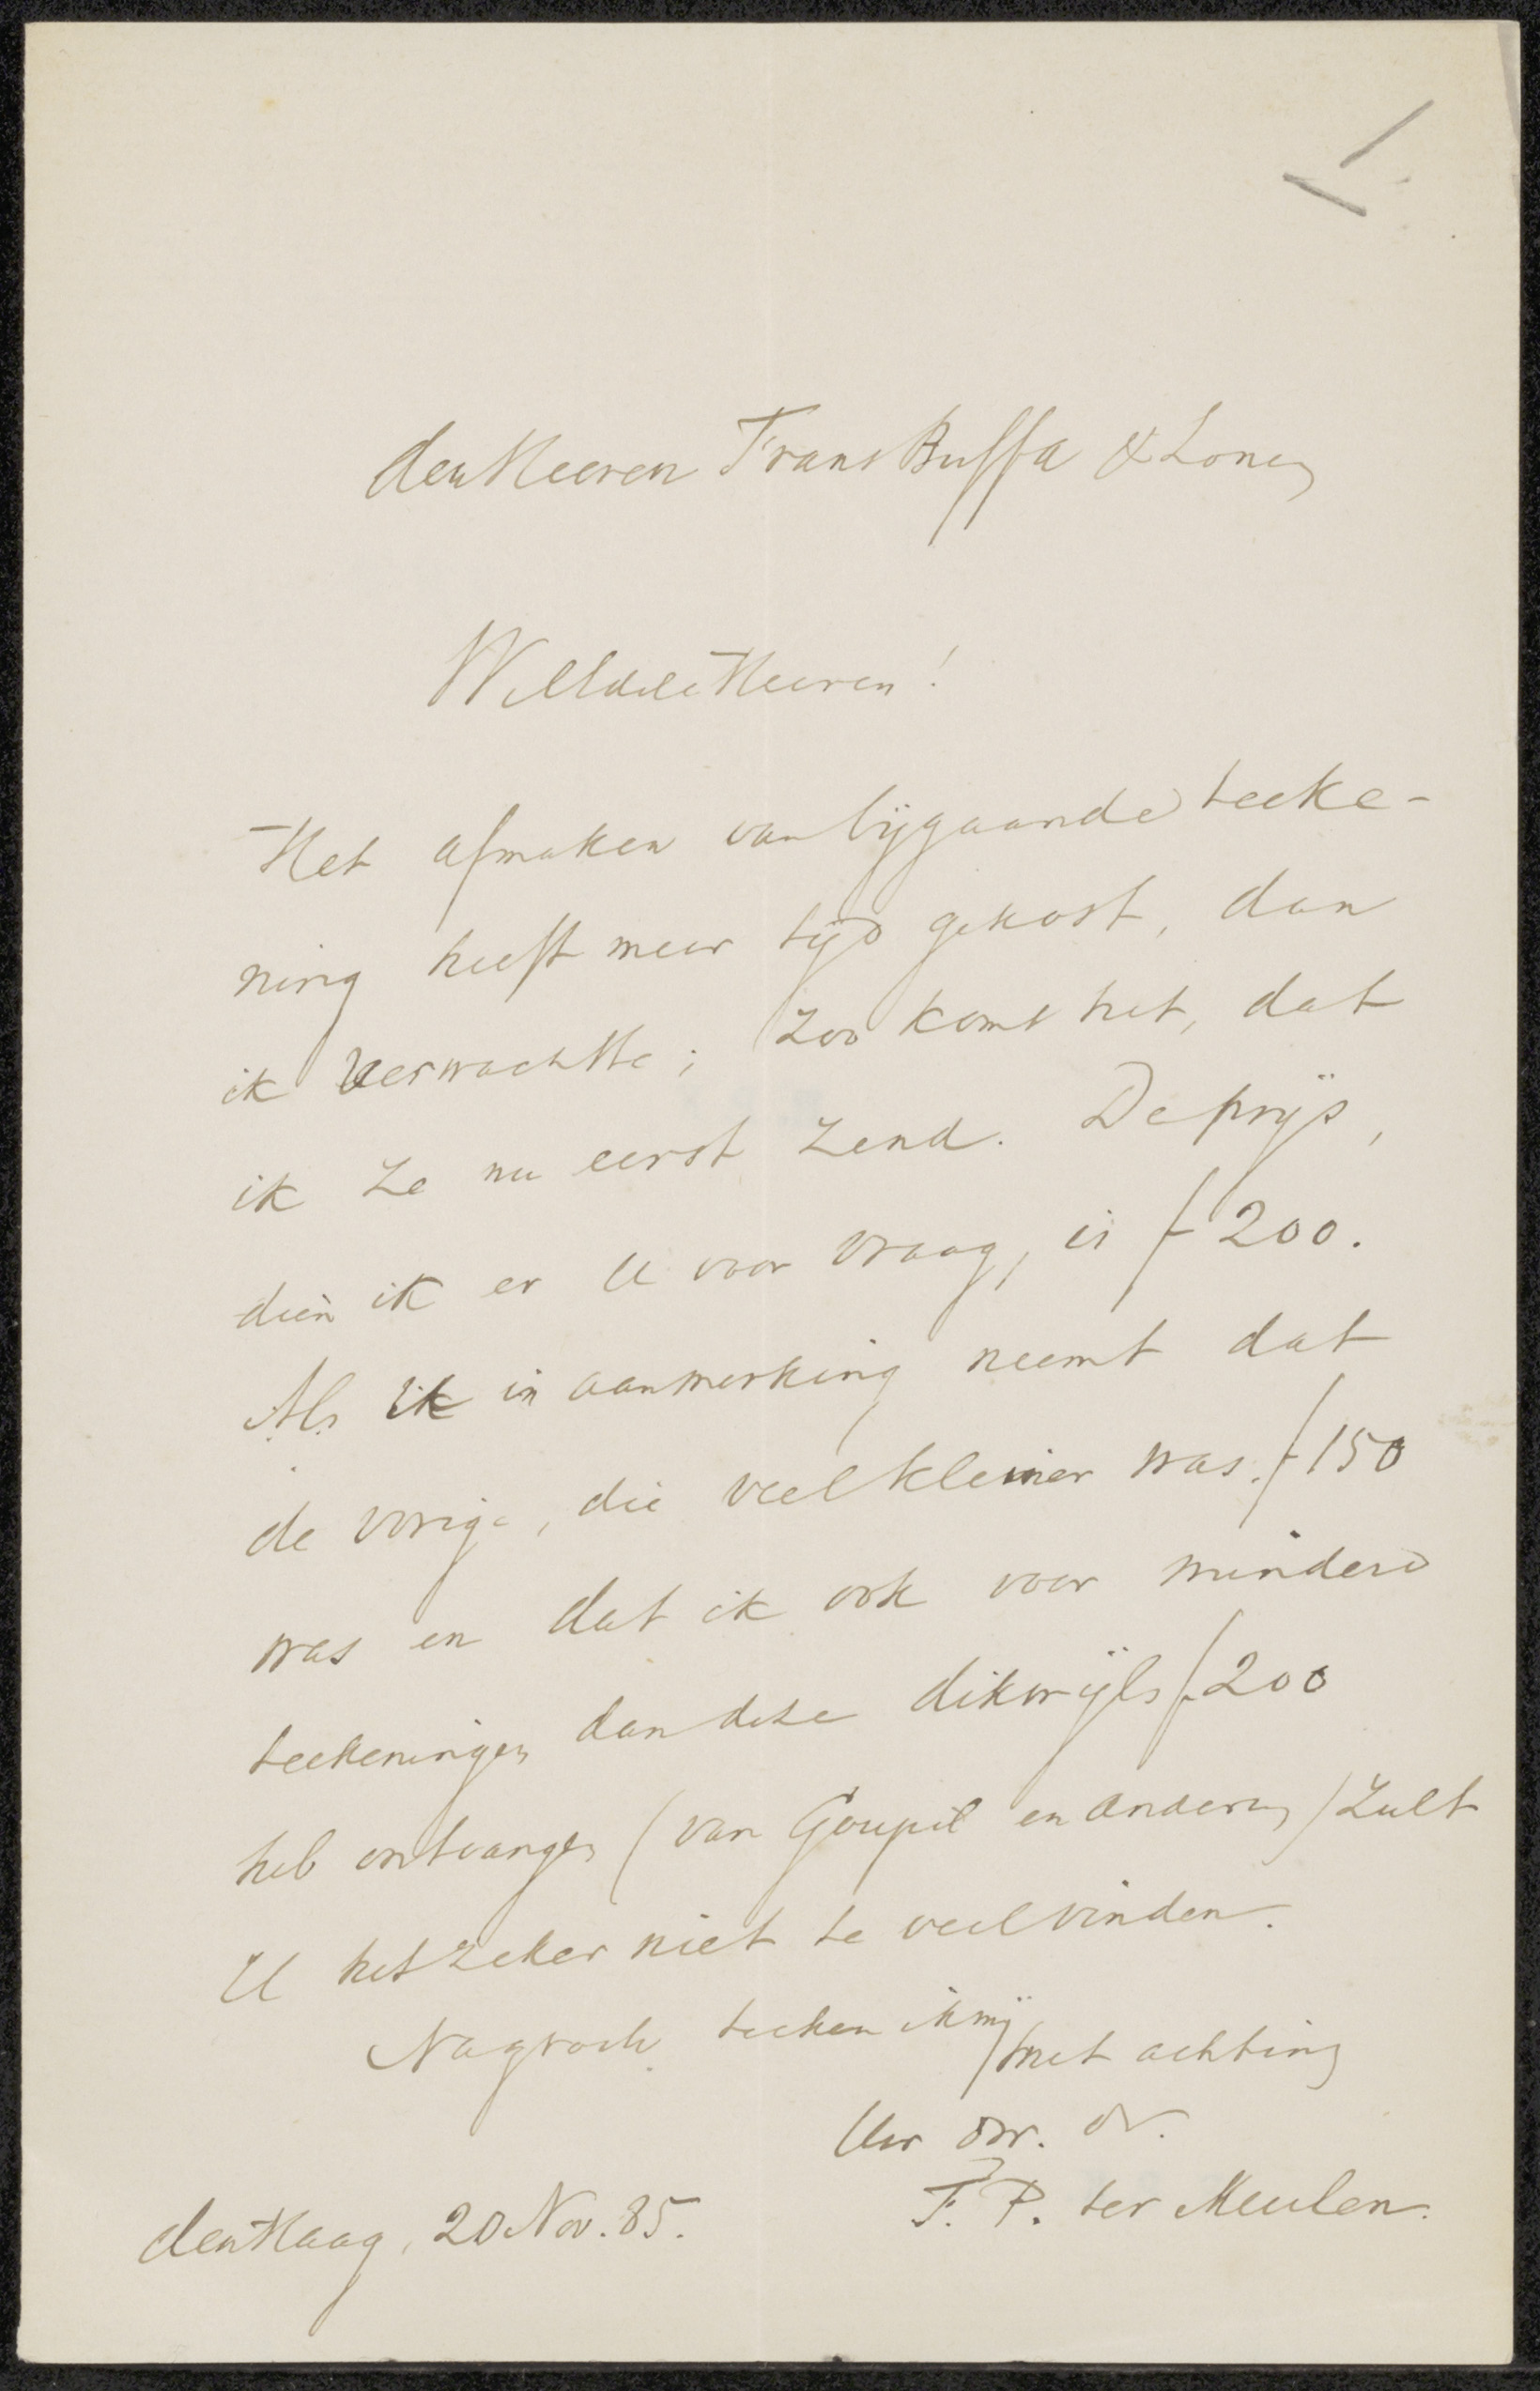 den Heeren Frans Buffa & Zonen
WelEdele Heeren!
Het afmaken van bijgaande teeke-
ning heeft meer tijd gekost, dan
ik verwachtte; zoo komt het, dat
ik ze nu eerst zend. De prijs,
dien ik er U voor vraag, is f 200.
Als ik in aanmerking neemt dat
de vorige, die veel kleiner was. f 150
was en dat ik ook voor mindere
teekeningen dan deze dikwijls f 200
heb ontvangen (van Goupil en anderen) zult
U het zeker niet te veel vinden.
Nogmaals teeken ik mij
met achting
Uw dw. dr.
F. P. ter Meulen.
den Haag, 20 Nov. 85.